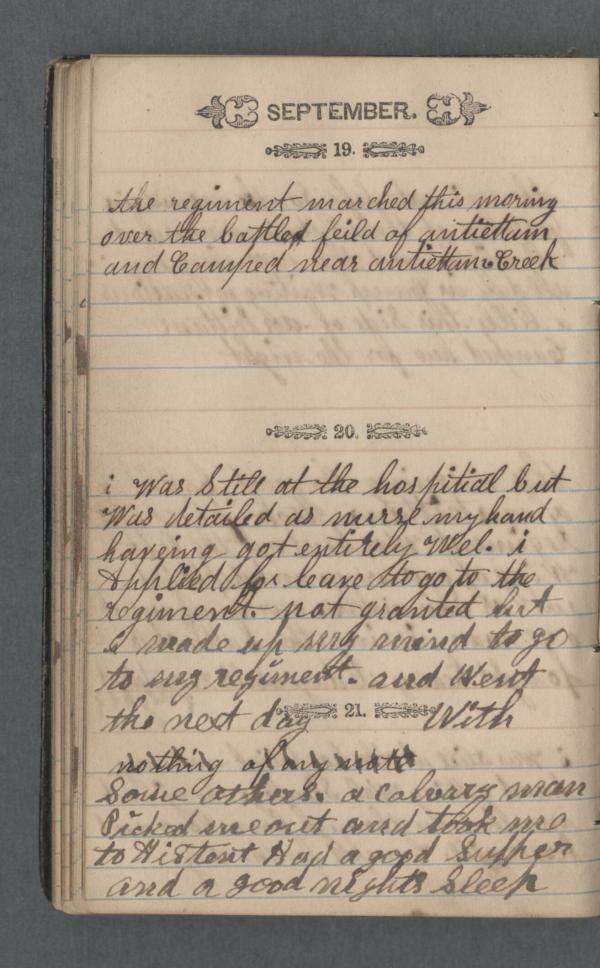 SEPTEMBER.
19.
the regiment marched this moring
over the battled feild of antiettam
and Camped near antiettam Creek
20.
i Was Still at the hospitial but
Was detailed as nurse my hand
haveing got entirely Wel. i
Applied for leave to go to the
regiment. not granted but
i made up my mind to go
to my regiment. and Went
the next day With
21.
nothing of any note
Some others. a calvary man
Picked me out and took me
to His tent Had a good Supper
and a good nights Sleep